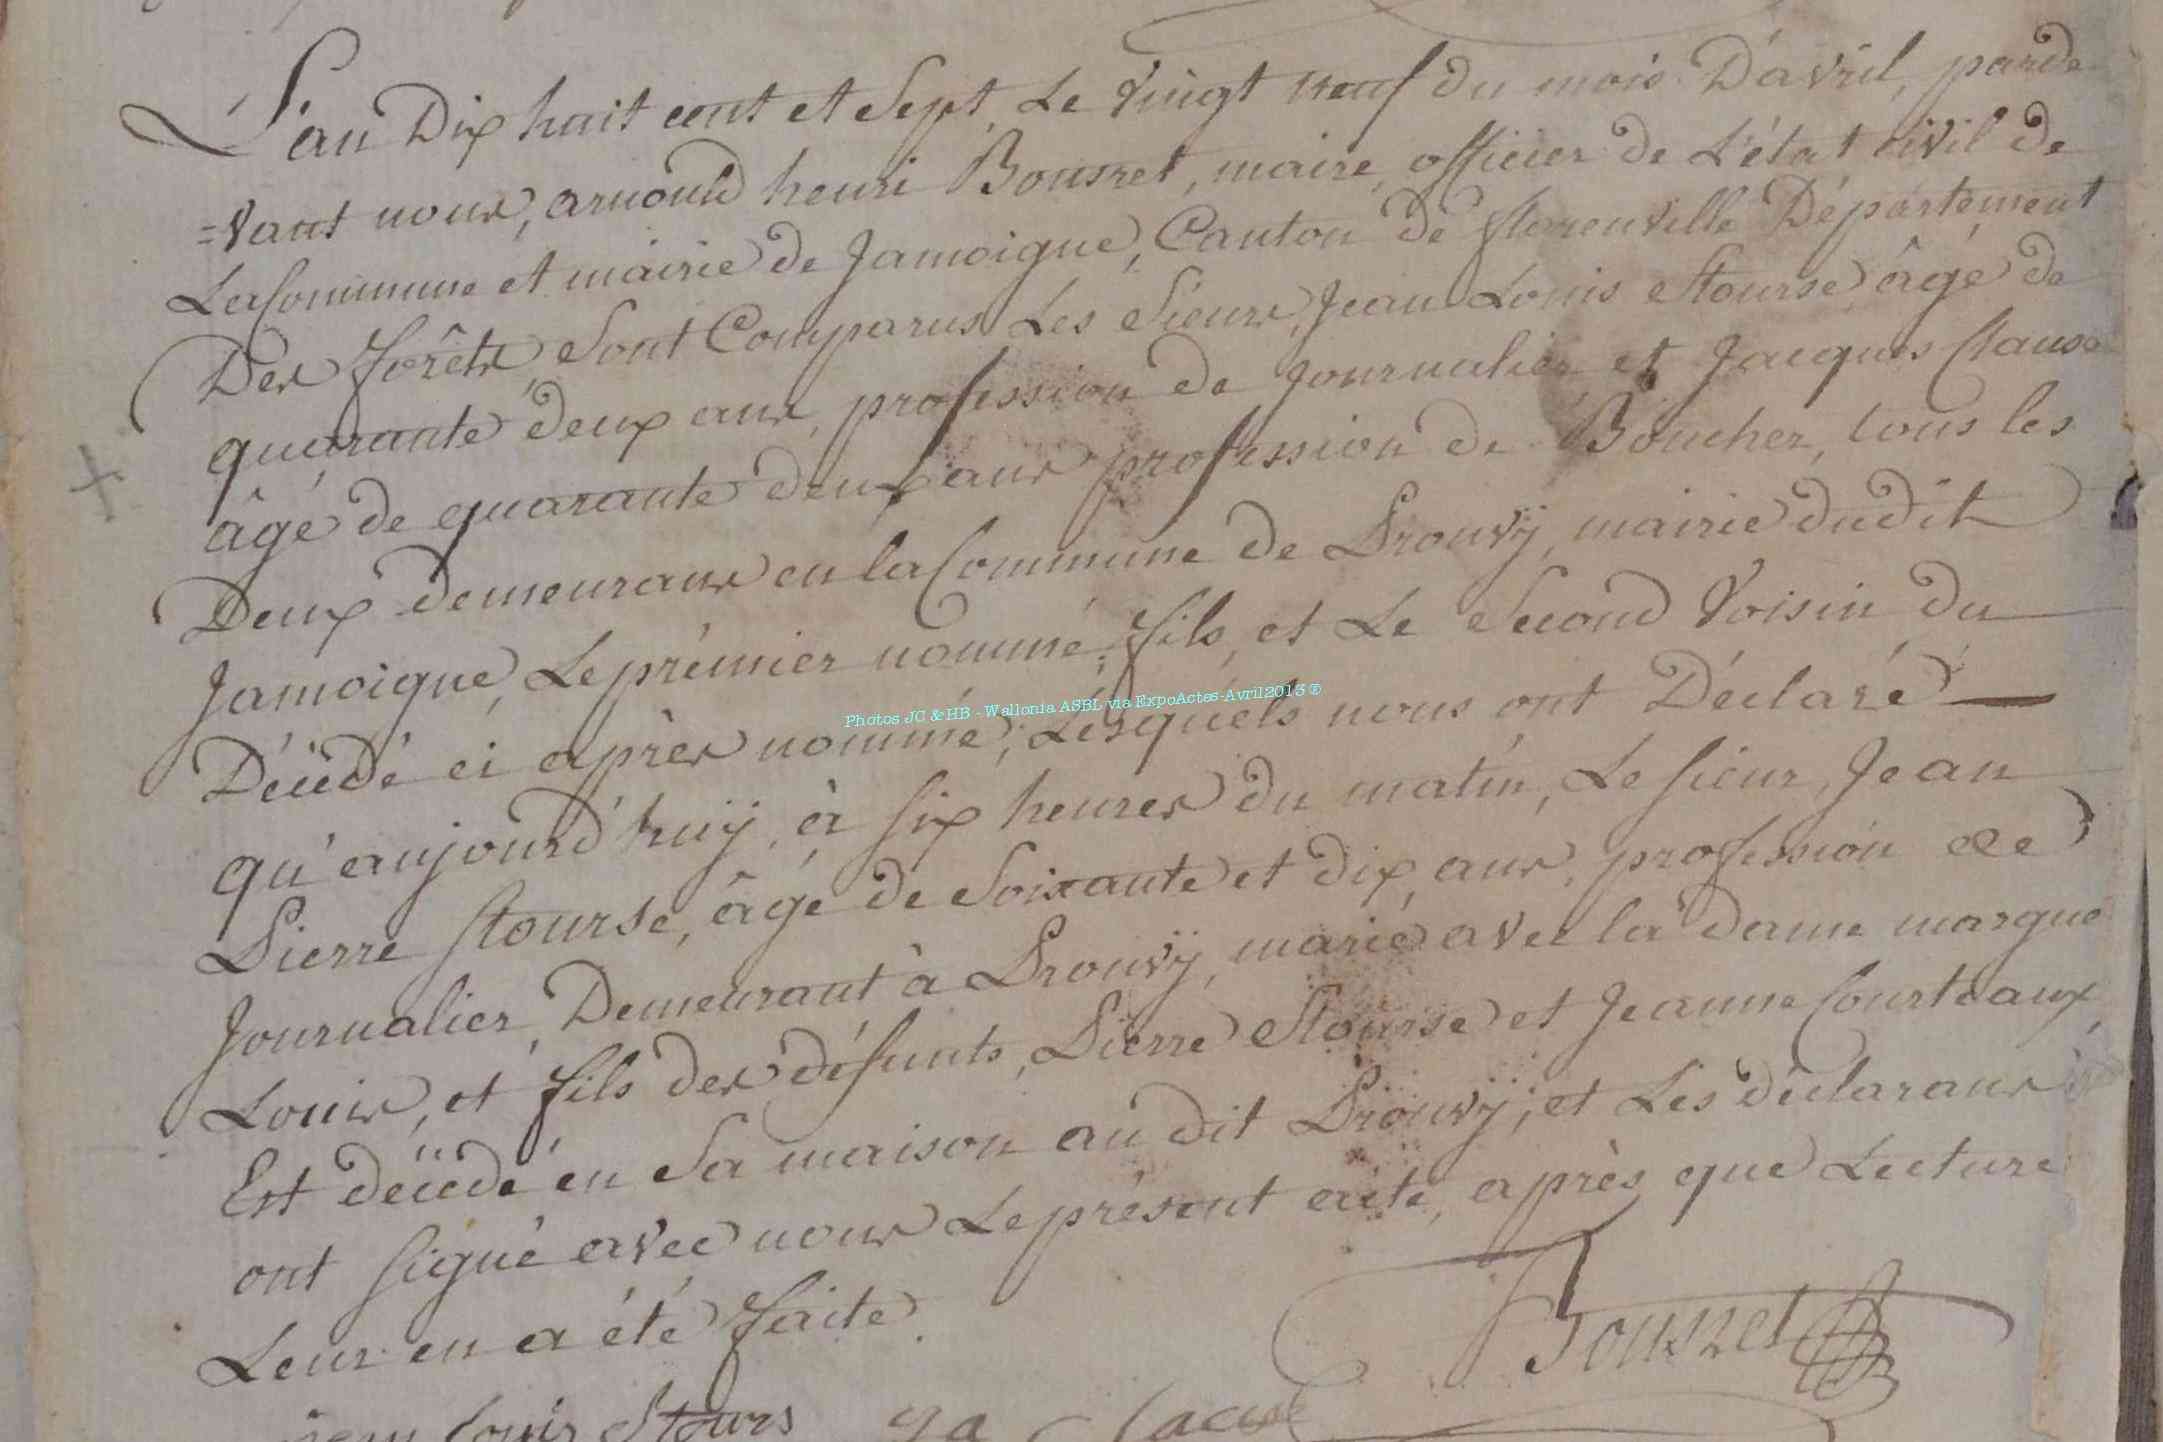 L'an Dix huit cent et sept, Le vingt neuf du mois D'avril, parde
=vant nous, arnould henri Bousret, maire, officier de L'état civil de
La Commune et mairie de Jamoigne, Canton de florenville Département
Des forêts, Sont Comparus Les Sieurs, Jean Louis Stourse âgé de
quarante deux ans, profession de journalier, et Jacques Clause
âgé de quarante deux ans profession de Boucher, tous les
Deux demeurans en la Commune de Prouvÿ, mairie dudit
Jamoigne, Le prémier nommé, fils, et Le Second Voisin du
Décédé ci après nommé, Lésquéls nous ont Déclaré
Photos JC & HB - Wallonia ASBL via ExpoActes-Avril2013 ®
qu'aujourd'huÿ, à six heures du matin, Le sieur, Jean
Pierre Stourse, âgé de Soixante et dix ans, profession de
Journalier, Demeurant à Prouvÿ, marié avec la dame margue
Louis, et fils des défunts, Pierre Stourse et Jeanne Courteaux,
Est décédé en Sa maison au dit Prouvÿ, et Les déclarans
ont signé avec nous Le présent acte, après que Lecture
Leur en a été faite.
Bousret
jean louis Stours